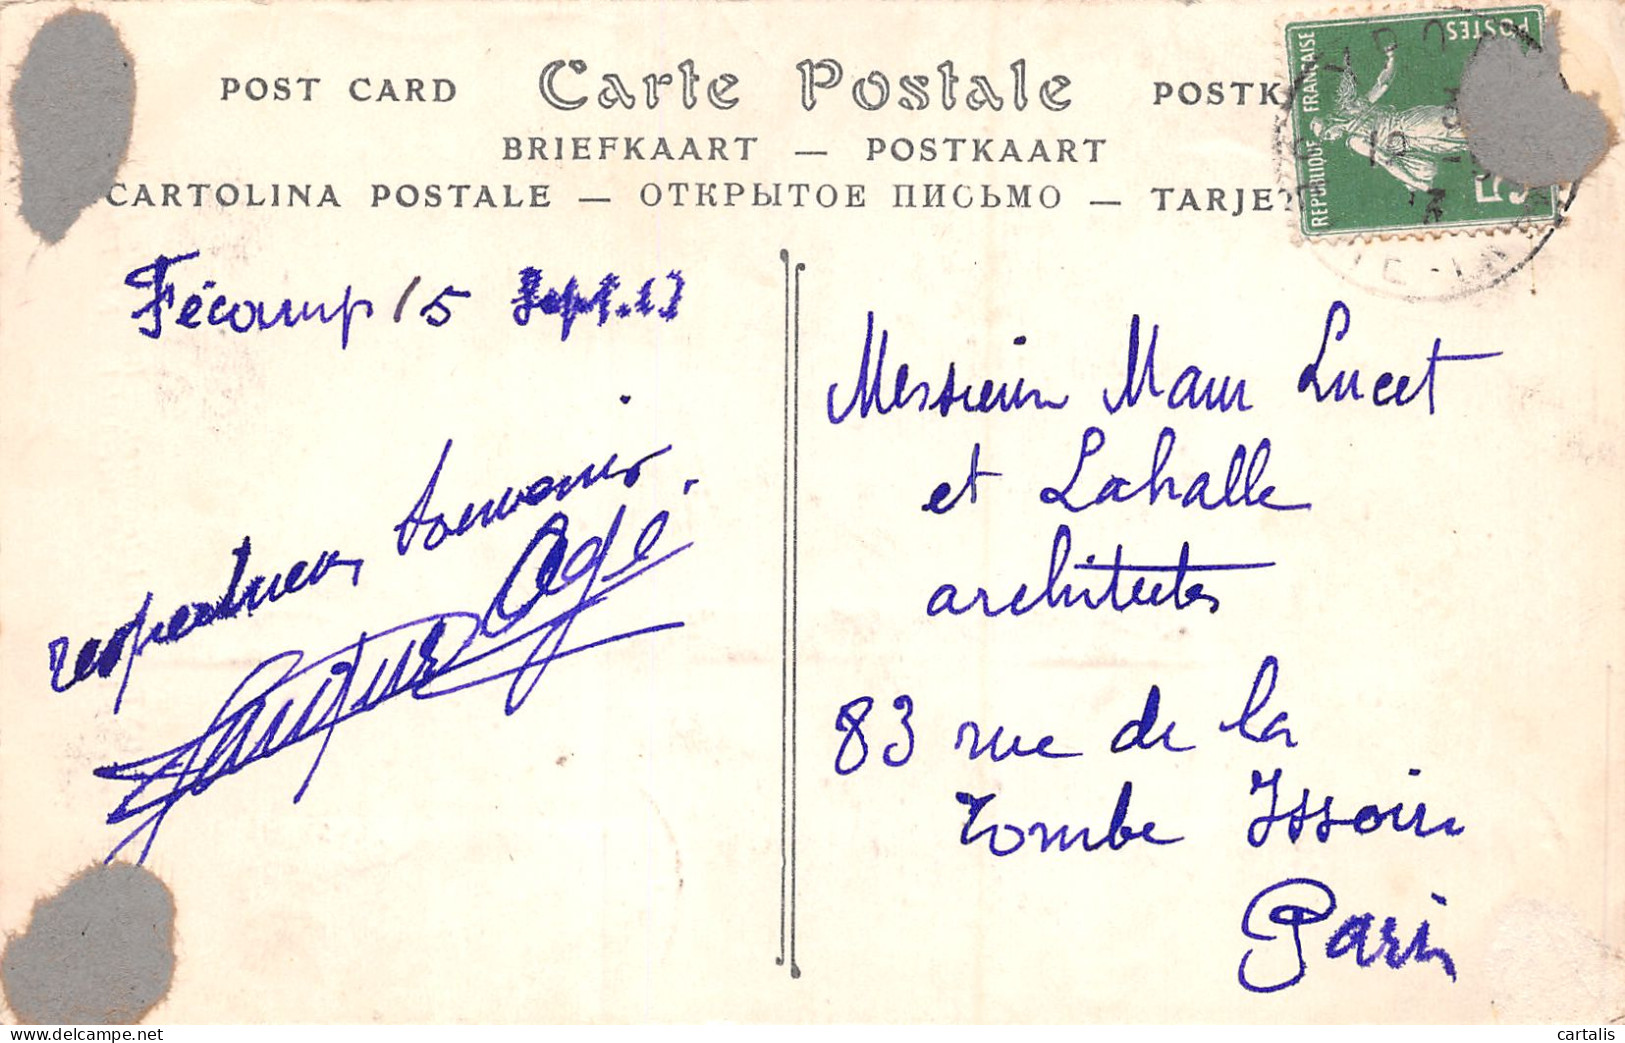 POST CARD Carte Postale POSTK
BRIEFKAART — POSTKAART
CARTOLINA POSTALE — ОТКРЫТОЕ ПИСЬМО — TARJE
REPUBLIQUE FRANÇAISE
POSTES
5
Fécamp 15 Sept. 13
respectueux souvenir.
Messieurs Maur Lucet
et Lahalle
architectes
83 rue de la
Tombe Issoire
Paris
cartalis